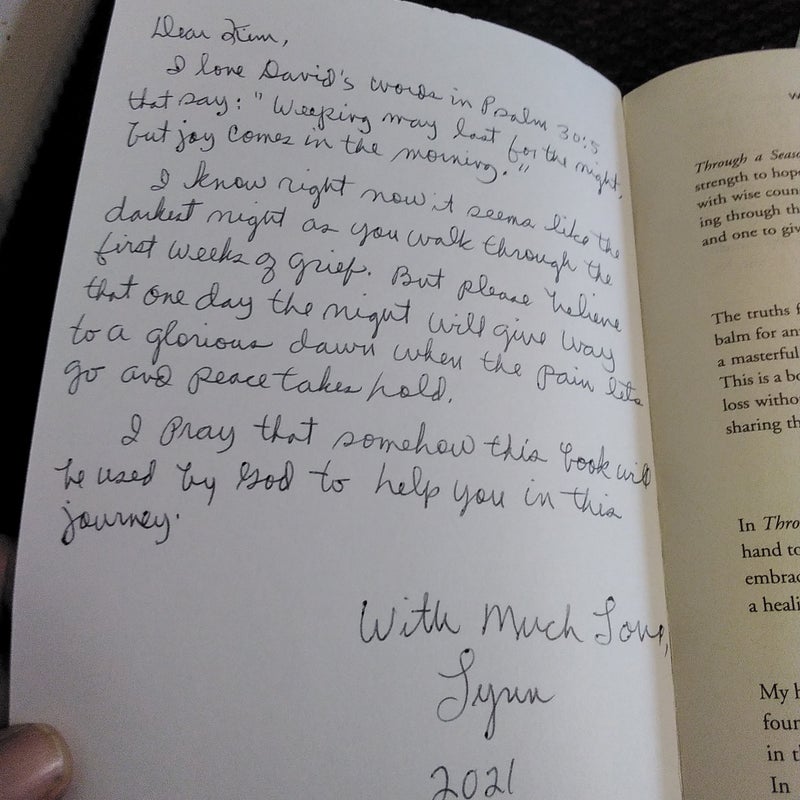 Dear Kim,
I love David's words in Psalm 30:5
that say: "Weeping may last for the night,
but joy comes in the morning."
I know right now it seems like the
darkest night as you walk through the
first weeks of grief. But please believe
that one day the night will give way
to a glorious dawn when the pain lets
go and peace takes hold.
I pray that somehow this book will
be used by God to help you in this
journey.
With Much Love,
Lynn
2021
Through a Seas
strength to hop
with wise coun
ing through th
and one to giv
The truths f
balm for an
a masterful
This is a bo
loss witho
sharing th
In Thro
hand to
embrac
a heali
My h
foun
in th
In